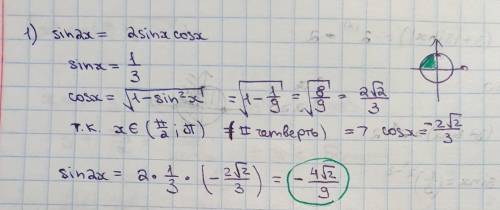 1) sin2x = 2sinxcosx
sinx = 1/3
cosx = √(1-sin²x) = √(1-1/9) = √(8/9) = 2√2/3
т.к. x∈(π/2; π) (II четверть) => cosx = -2√2/3
sin2x = 2·1/3·(-2√2/3) = -4√2/9